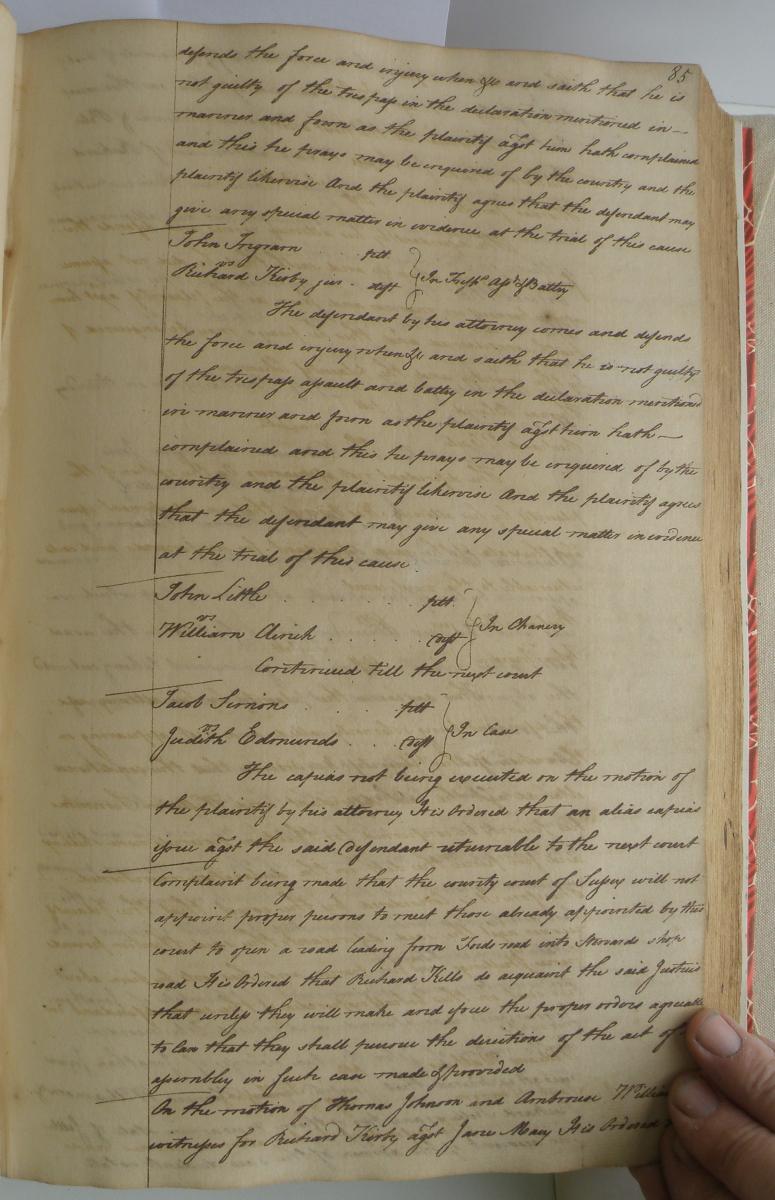 85
defends the force and injury when &c and saith that he is
not guilty of the trespass in the declaration mentioned in—
manner and form as the plaintif agst him hath complained
and this he prays may be enquired of by the country and the
plaintif likewise And the plaintif agrees that the defendant may
give any special matter in evidence at the trial of this cause
John Ingram . . . plt
vs
Richard Kirby jur . deft } In Tresps Asst & Battry
The defendant by his attorney comes and defends
the force and injury when &c and saith that he is not guilty
of the trespass assault and battry in the declaration mentioned
in manner and form as the plaintif agst him hath—
complained and this he prays may be enquired of by the
country and the plaintif likewise And the plaintif agrees
that the defendant may give any special matter in evidence
at the trial of this cause
John Little . . . . plt
vs
William Clinch . . . . deft } In Chancry
Continued till the next court
Jacob Simons . . . . plt
vs
Judith Edmunds . . . deft } In Case
The capias not being executed on the motion of
the plaintif by his attorney It is Ordered that an alias capias
issue agst the said Defendant returnable to the next court
Complaint being made that the county court of Sussex will not
appoint proper persons to meet those already appointed by this
court to open a road leading from Fords road into Stewards shop
road It is Ordered that Richard Kills do acquaint the said Justices
that unless they will make and issue the proper orders agreeable
to Law that they shall pursue the directions of the act of
assembly in such case made & provided
On the motion of Thomas Johnson and Ambrouse William
witnesses for Richard Kirby agst Jane Macy It is Ordered